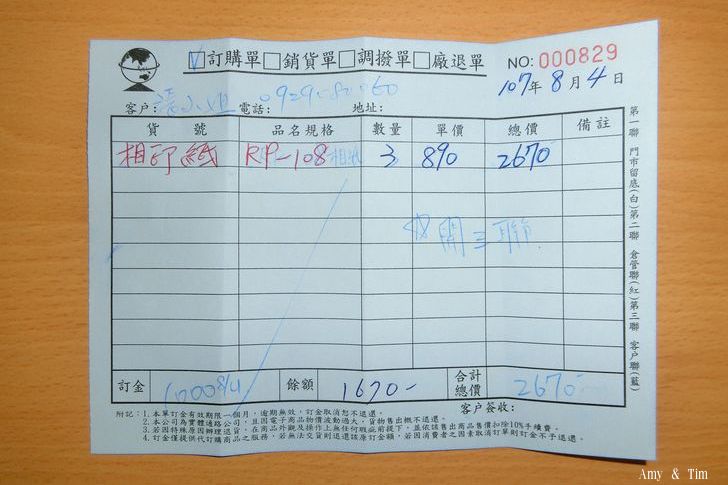 ☑訂購單☐銷貨單☐調撥單☐廠退單
NO: 000829
107年8月4日
客戶: 張小姐 電話: 地址:
貨號 品名規格 數量 單價 總價 備註
相印紙 RP-108 相紙 3 890 2670
開三聯
訂金 1000 8/4 餘額 1670- 合計總價 2670-
客戶簽收:
附記:1.本單訂金有效期限一個月,逾期無效,訂金取消恕不退還。
2.本公司為實體通路公司,且因電子商品物價波動過大,貨物售出概不退還。
3.若因特殊原因辦理退貨,在商品外觀及操作上無任何瑕疵前提下,並依該售出商品售價扣除10%手續費。
4.訂金僅提供代訂購商品之服務,若無法交貨則退還該原訂金額,若因消費者之因素取消訂單則訂金不予退還。
第一聯 門市留底(白)第二聯 倉管聯(紅)第三聯 客戶聯(藍)
Amy & Tim